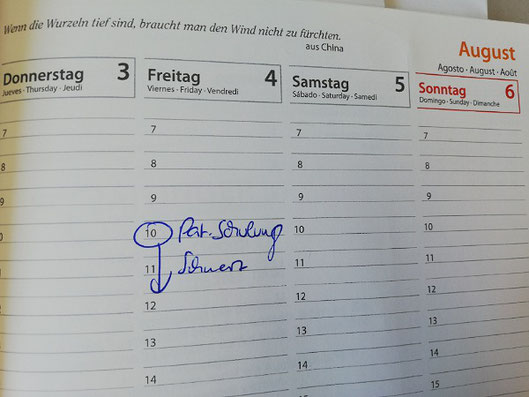 Wenn die Wurzeln tief sind, braucht man den Wind nicht zu fürchten.
aus China
August
Agosto · August · Août
Donnerstag 3
Jueves · Thursday · Jeudi
Freitag 4
Viernes · Friday · Vendredi
Samstag 5
Sábado · Saturday · Samedi
Sonntag 6
Domingo · Sunday · Dimanche
7 7 7 7
8 8 8 8
9 9 9
10 Pat. Schulung 10 10
11 Schmerz 11 11
12 12 12
13 13 13
14 14 14
15